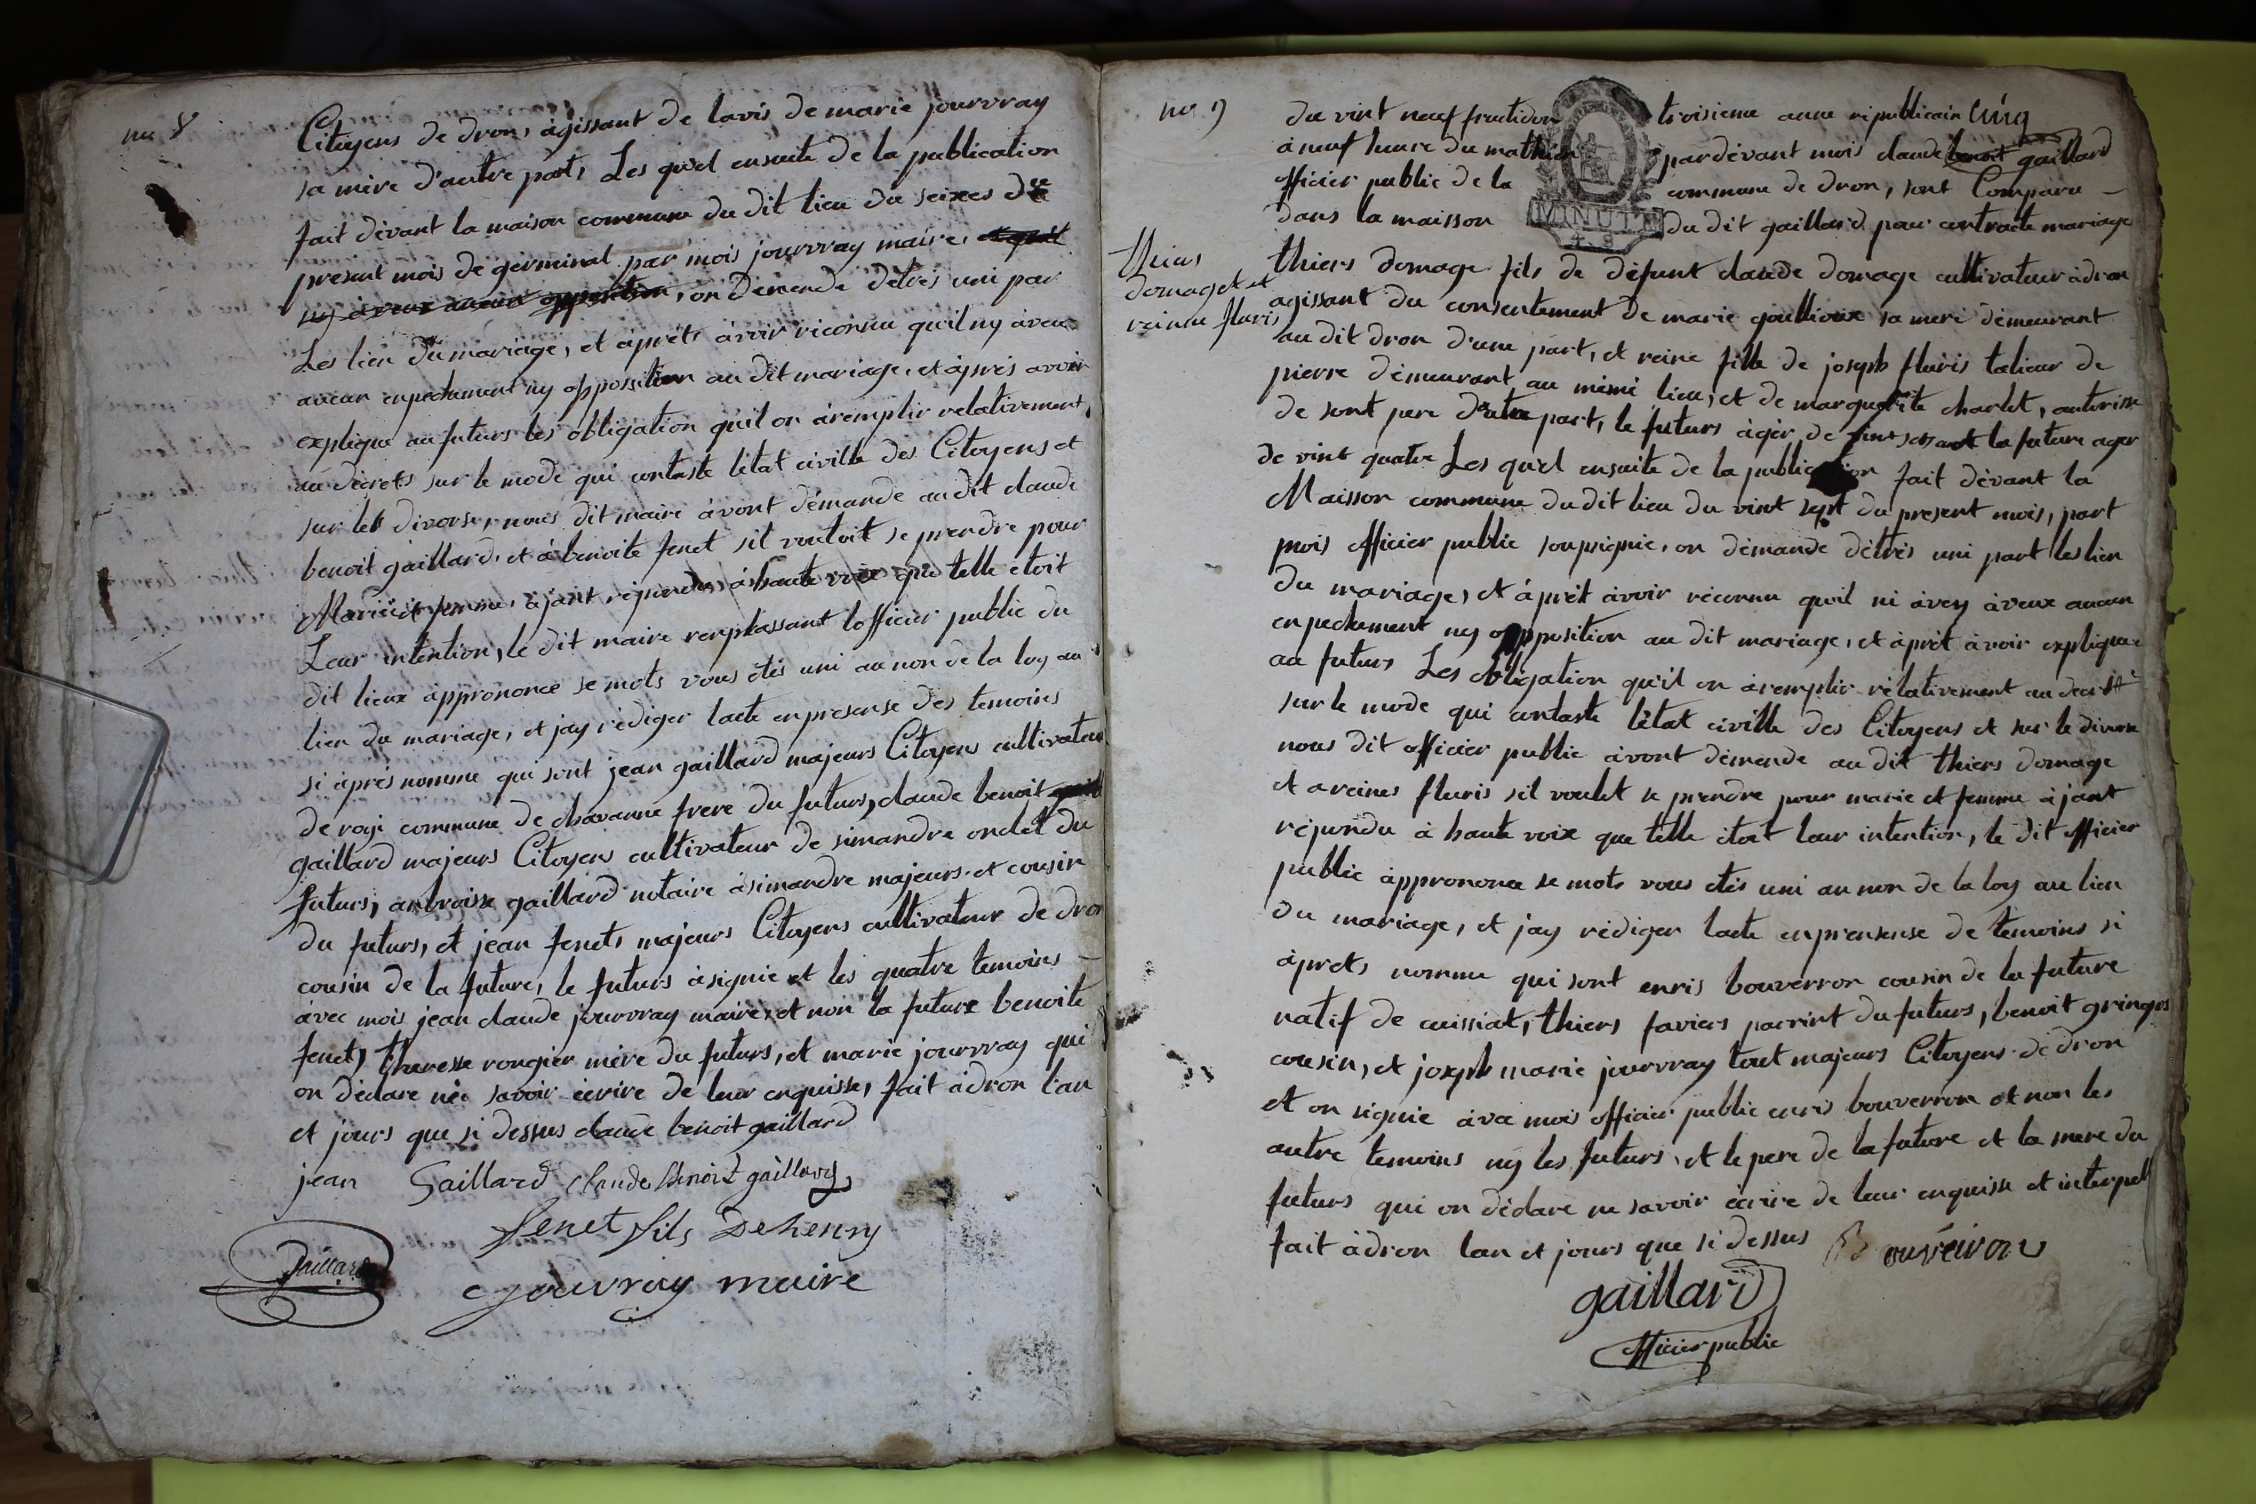 nu 8
Citoyens de dron, àgissant de lavis de marie jourvray
sa mère d'autre part, Les quel ensuite de la publication
fait dévant la maison commune du dit lieu du seixes de
present mois de germinal par mois jourvray maire,
on démende détrés uni par
Les lien du mariage, et àpréts àvoir réconnu quil ny àveu
aucun enpechement ny opposition au dit mariage, et àprés avoir
explique au futurs les obligation quil on àremplir relativement
au décrets sur le mode qui contaste létat civille des Citoyens et
sur les divorse, nous dit maire àvont démande au dit claude
benoit gaillard, et à benoite fenet sil vouloit se prendre pour
Marié et femme, àjant réjondu à haute voix que telle étoit
Leur intention, le dit maire remplassant lofficier public du
dit lieux àpprononce se mots vous étés uni au non de la loy au
lien du mariage, et jay rédiger lacte enpresense des temoins
si àprés nomme qui sont jean gaillard majeurs Citoyens cultivateur
de rogi commune de chavanne frere du futurs, claude benoit
gaillard majeurs Citoyens cultivateur de simandre onclet du
futurs, anbroisse gaillard notaire àsimandre majeurs et cousin
du futurs, et jean fenet, majeurs Citoyens cultivateur de dron
cousin de la future, le futurs àsignie et les quatre temoins
àvec mois jean claude jourvray maire, et non la future benoite
fenet, theresse rongier mère du futurs, et marie jourvray qui
on déclare née savoir écrire de leur enquisse, fait àdron lan
et jours que si dessus claude benoit gaillard
jean Gaillard claude benoit gaillard
fenet fils Dehenry
Gaillard
Jouvray maire
no 9
du vint neuf fructidor troisieme anne républicain Cinq
à neuf heure du mathien pardévant mois claude benoit gaillard
officier public de la commune de dron, sont Comparu
dans la maisson du dit gaillard pour contracte mariage
MINUTE
thiers
domaget et
reine fluris
thiers domage fils de défunt claude domage cultivateur àdron
agissant du consentement de marie goullioux sa meré démeurant
au dit dron d'une part, et reine fille de joseph fluris talieur de
pierre démeurant au mémé lieu, et de marguerite charlet, autorisse
de sont pere d'autre part, le futurs àgér de la future ager
de vint quatre Les quel ensuite de la publication fait dévant la
Maisson commune du dit lieu du vint sept du present mois, part
mois officier public soupsignie, on démande détrés uni part les lien
du mariage, et àprét àvoir réconnu quil ni àvey àveux aucun
enpechement ny opposition au dit mariage, et àprét àvoir explique
au futurs Les obligation qu'il on àremplir rélativement au decret
sur le mode qui contaste létat civille des Citoyens et sur le divorse
nous dit officier public àvont démende au dit thiers domage
et a reines fluris sil voulet se prendre pour marie et femme àjant
réjondu à haute voix que telle étoit leur intention, le dit officier
public àpprononce se mots vous étés uni au non de la loy au lien
du mariage, et jay rédiger lacte enprensense de temoins si
àpréts nomme qui sont enris bouverron cousin de la future
natif de cuissiat, thiers faviers parrint du futurs, benoit gringos
cousin, et joseph marie jourvray tout majeurs Citoyens de dron
et on signie àvec mois officier public enris bouverron et non les
autre temoins ny les futurs, et le pere de la future et la mere du
futurs qui on déclare ne savoir écrire de leur enquisse et interpell
fait àdron lan et jours que si dessus Bouvéiron
gaillard
officier public